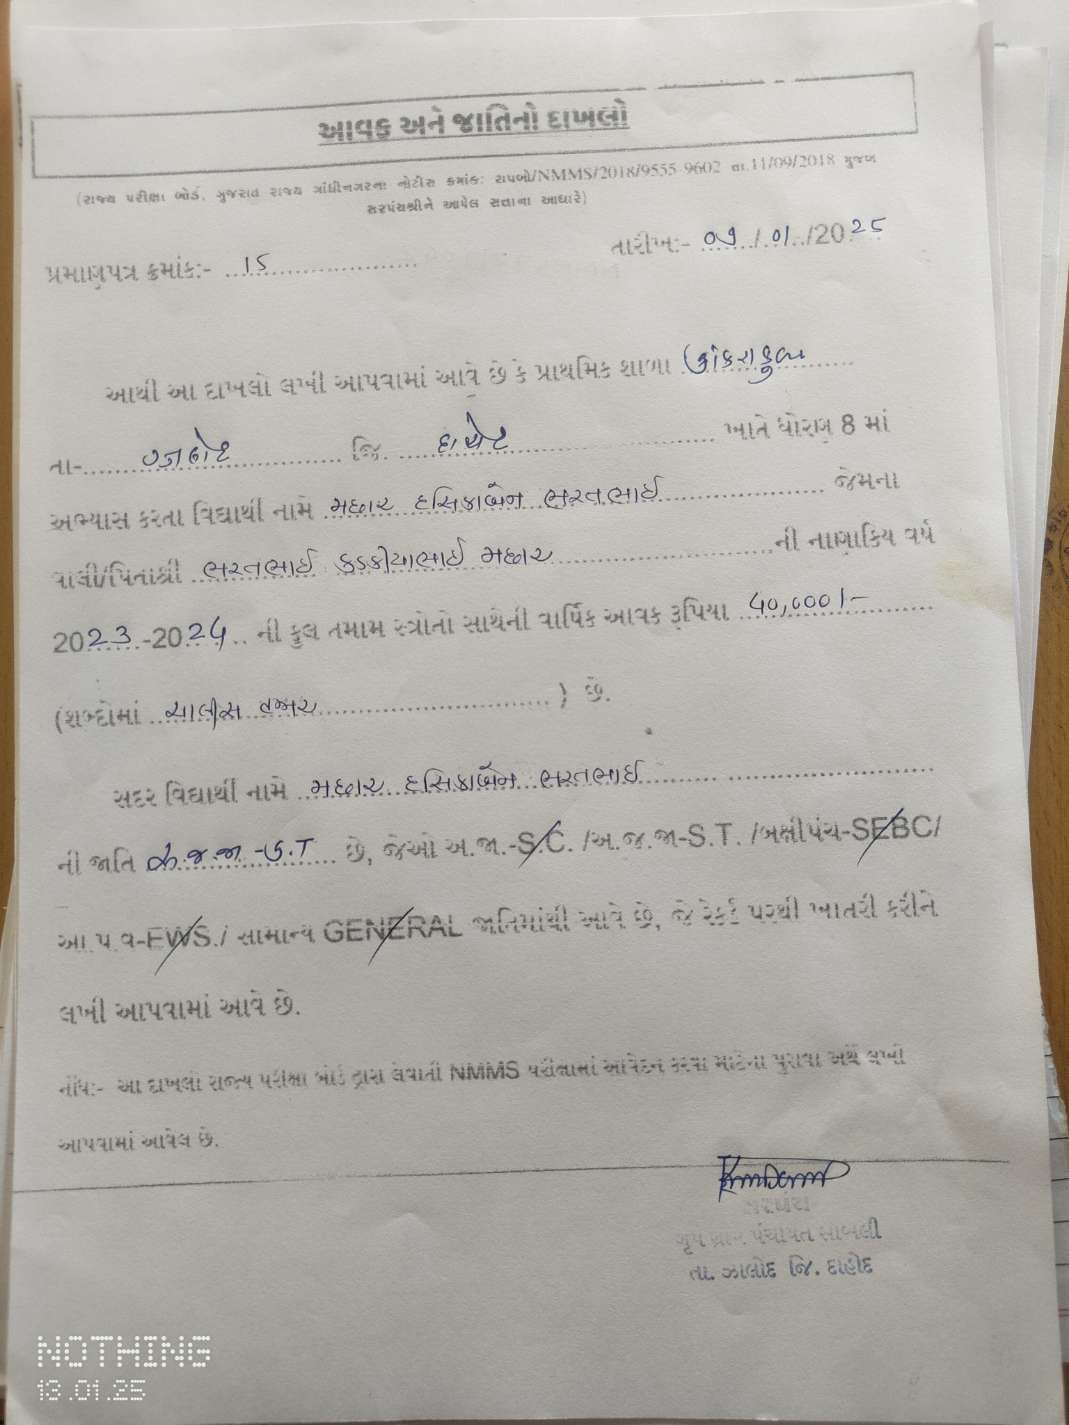 આવક અને જાતિનો દાખલો
(રાજ્ય પરીક્ષા બોર્ડ, ગુજરાત રાજ્ય ગાંધીનગરના નોટીસ ક્રમાંક: રાપબો/NMMS/2018/9555-9602 તા.11/09/2018 મુજબ
સરપંચશ્રીને આપેલ સત્તાના આધારે)
તારીખ:- ૦૭/૦૧/2025
પ્રમાણપત્ર ક્રમાંક:- 15
આથી આ દાખલો લખી આપવામાં આવે છે કે પ્રાથમિક શાળા
તા- જિ. દાહોદ ખાતે ધોરણ 8 માં
અભ્યાસ કરતા વિદ્યાથી નામે મછાર હસિકાબેન ભરતભાઈ જેમના
વાલી/પિતાશ્રી ભરતભાઈ કડકીયાભાઈ મછાર ની નાણાકિય વર્ષ
2023-2024 ની કુલ તમામ સ્ત્રોતો સાથેની વાર્ષિક આવક રૂપિયા 40,000/-
(શબ્દોમાં ચાલીસ હજાર ) છે.
સદર વિદ્યાથી નામે મછાર હસિકાબેન ભરતભાઈ
ની જાતિ અ.જ.જા-S.T છે, જેઓ અ.જા.-S.C. /અ.જ.જા-S.T. /બક્ષીપંચ-SEBC/
આ.પ.વ-EWS./ સામાન્ય GENERAL જાતિમાંથી આવે છે, જે રેકર્ડ પરથી ખાતરી કરીને
લખી આપવામાં આવે છે.
નોંધ:- આ દાખલો રાજ્ય પરીક્ષા બોર્ડ દ્વારા લેવાતી NMMS પરીક્ષામાં આવેદન કરવા માટેના પુરાવા અર્થે લખી
આપવામાં આવેલ છે.
સરપંચ
ગ્રુપ ગ્રામ પંચાયત
તા. ઝાલોદ જિ. દાહોદ
NOTHING
13.01.25